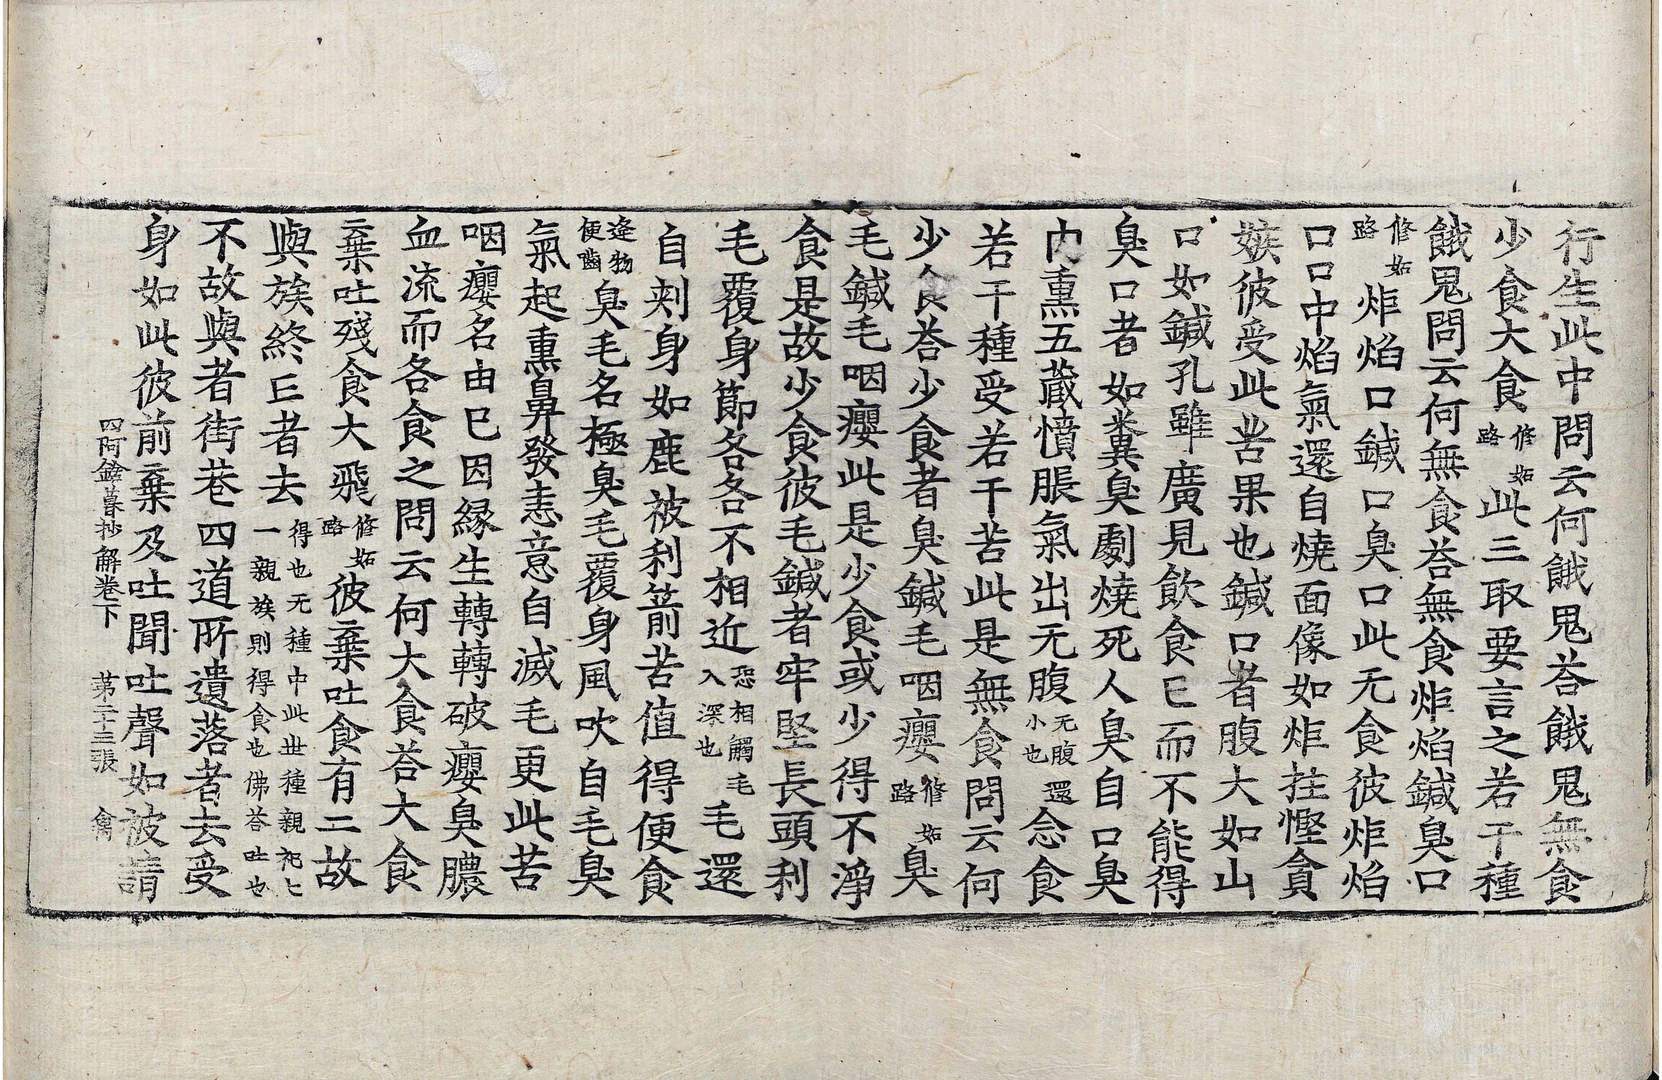 行生此中問云何餓鬼荅餓鬼無食
少食大食修妬路此三取要言之若干種
餓鬼問云何無食荅無食炸焰鍼臭口
修妬路炸焰口鍼口臭口此无食彼炸焰
口口中焰氣還自燒面像如炸拄慳貪
嫉彼受此苦果也鍼口者腹大如山
口如鍼孔雖廣見飲食已而不能得
臭口者如糞臭劇燒死人臭自口臭
内熏五藏憤脹氣出无腹无腹小也還念食
若干種受若干苦此是無食問云何
少食荅少食者臭鍼毛咽癭修妬路臭
毛鍼毛咽癭此是少食或少得不淨
食是故少食彼毛鍼者牢堅長頭利
毛覆身節各各不相近恐相觸毛入深也毛還
自刾身如鹿被利箭苦值得便食
逢物便齧臭毛名極臭毛覆身風吹自毛臭
氣起熏鼻發恚意自滅毛更此苦
咽癭名由已因緣生轉轉破癭臭膿
血流而各食之問云何大食荅大食
棄吐殘食大飛修妬路彼棄吐食有二故
與族終已者去得也无種中此世種親祀七一親族則得食也佛荅吐也
不故與者街巷四道所遺落者去受
身如此彼前棄及吐聞吐聲如被請
四阿鋡暮抄解卷下　第二十三張　禽